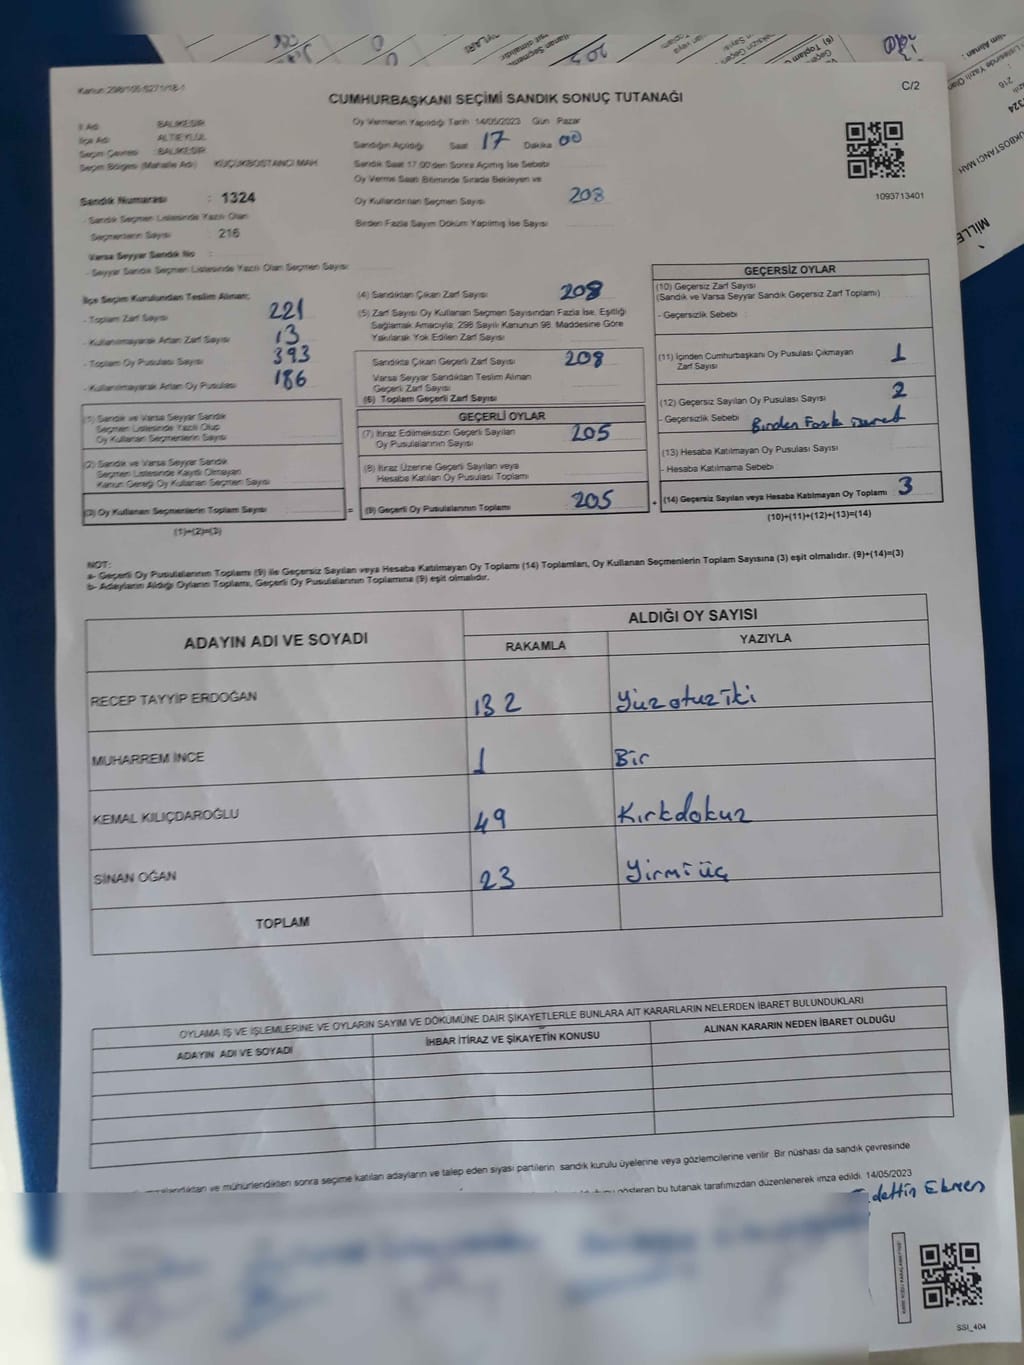 Kanun 298/105-5271/18-1
C/2
CUMHURBAŞKANI SEÇİMİ SANDIK SONUÇ TUTANAĞI
İl Adı BALIKESİR
İlçe Adı ALTIEYLÜL
Seçim Çevresi BALIKESİR
Seçim Bölgesi (Mahalle Adı) KÜÇÜKBOSTANCI MAH.
Sandık Numarası : 1324
- Sandık Seçmen Listesinde Yazılı Olan
Seçmenlerin Sayısı : 216
Varsa Seyyar Sandık No :
- Seyyar Sandık Seçmen Listesinde Yazılı Olan Seçmen Sayısı
Oy Vermenin Yapıldığı Tarih 14/05/2023 Gün Pazar
Sandığın Açıldığı Saat 17 Dakika 00
Sandık Saat 17.00'den Sonra Açılmış İse Sebebi
Oy Verme Saati Bitiminde Sırada Bekleyen ve
Oy Kullandırılan Seçmen Sayısı 208
Birden Fazla Sayım Döküm Yapılmış İse Sayısı
1093713401
İlçe Seçim Kurulundan Teslim Alınan;
- Toplam Zarf Sayısı 221
- Kullanılmayarak Artan Zarf Sayısı 13
- Toplam Oy Pusulası Sayısı 393
- Kullanılmayarak Artan Oy Pusulası 186
(1) Sandık ve Varsa Seyyar Sandık
Seçmen Listesinde Yazılı Olup
Oy Kullanan Seçmenlerin Sayısı
(2) Sandık ve Varsa Seyyar Sandık
Seçmen Listesinde Kayıtlı Olmayan
Kanun Gereği Oy Kullanan Seçmen Sayısı
(3) Oy Kullanan Seçmenlerin Toplam Sayısı
(1)+(2)=(3)
(4) Sandıktan Çıkan Zarf Sayısı 208
(5) Zarf Sayısı Oy Kullanan Seçmen Sayısından Fazla İse, Eşitliği
Sağlamak Amacıyla; 298 Sayılı Kanunun 98. Maddesine Göre
Yakılarak Yok Edilen Zarf Sayısı
Sandıkta Çıkan Geçerli Zarf Sayısı 208
Varsa Seyyar Sandıktan Teslim Alınan
Geçerli Zarf Sayısı
(6) Toplam Geçerli Zarf Sayısı
GEÇERLİ OYLAR
(7) İtiraz Edilmeksizin Geçerli Sayılan
Oy Pusulalarının Sayısı 205
(8) İtiraz Üzerine Geçerli Sayılan veya
Hesaba Katılan Oy Pusulası Toplamı
= (9) Geçerli Oy Pusulalarının Toplamı 205 +
GEÇERSİZ OYLAR
(10) Geçersiz Zarf Sayısı
(Sandık ve Varsa Seyyar Sandık Geçersiz Zarf Toplamı)
- Geçersizlik Sebebi
(11) İçinden Cumhurbaşkanı Oy Pusulası Çıkmayan
Zarf Sayısı 1
(12) Geçersiz Sayılan Oy Pusulası Sayısı 2
- Geçersizlik Sebebi Birden Fazla
(13) Hesaba Katılmayan Oy Pusulası Sayısı
- Hesaba Katılmama Sebebi
(14) Geçersiz Sayılan veya Hesaba Katılmayan Oy Toplamı 3
(10)+(11)+(12)+(13)=(14)
NOT:
a- Geçerli Oy Pusulalarının Toplamı (9) ile Geçersiz Sayılan veya Hesaba Katılmayan Oy Toplamı (14) Toplamları, Oy Kullanan Seçmenlerin Toplam Sayısına (3) eşit olmalıdır. (9)+(14)=(3)
b- Adayların Aldığı Oyların Toplamı, Geçerli Oy Pusulalarının Toplamına (9) eşit olmalıdır.
ADAYIN ADI VE SOYADI
ALDIĞI OY SAYISI
RAKAMLA YAZIYLA
RECEP TAYYİP ERDOĞAN 132 Yüzotuziki
MUHARREM İNCE 1 Bir
KEMAL KILIÇDAROĞLU 49 Kırkdokuz
SİNAN OĞAN 23 Yirmiüç
TOPLAM
OYLAMA İŞ VE İŞLEMLERİNE VE OYLARIN SAYIM VE DÖKÜMÜNE DAİR ŞİKAYETLERLE BUNLARA AİT KARARLARIN NELERDEN İBARET BULUNDUKLARI
ADAYIN ADI VE SOYADI İHBAR İTİRAZ VE ŞİKAYETİN KONUSU ALINAN KARARIN NEDEN İBARET OLDUĞU
ve mühürlendikten sonra seçime katılan adayların ve talep eden siyasi partilerin sandık kurulu üyelerine veya gözlemcilerine verilir. Bir nüshası da sandık çevresinde
gösteren bu tutanak tarafımızdan düzenlenerek imza edildi. 14/05/2023
Ekmen
SSI_404